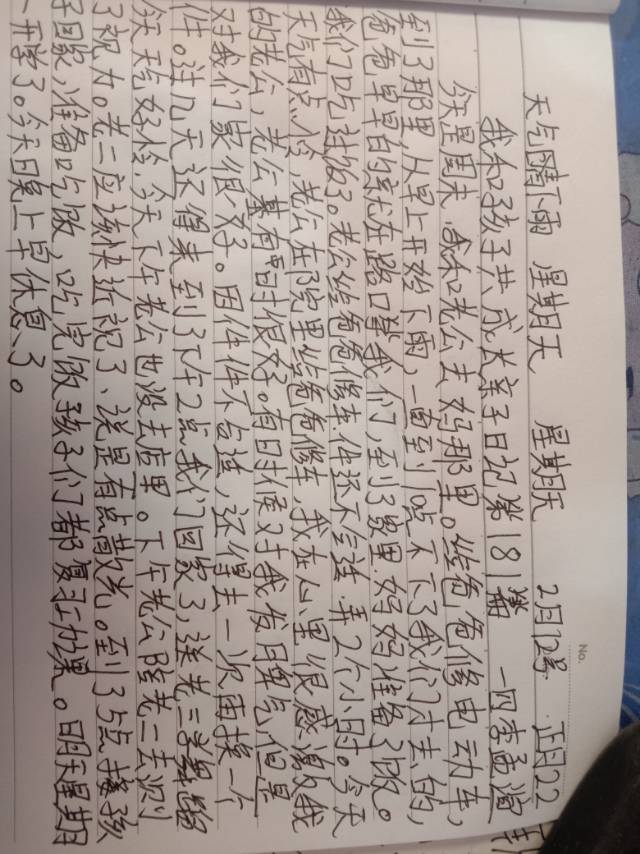 No.
天气晴下雨 星期天 星期天 2月12号 正月22
我和孩子共成长亲子日记第181篇 一(4)李孟
今天是周末,我和老公去妈那里。给爸爸修电动车,
到了那里,从早上开始下雨,一直到10点不下了我们才去的,
爸爸早早的就在路口等我们,到了家里妈妈准备了饭。
我们吃过饭了。老公给爸爸修车,件还不合适弄2个小时。今天
天气有点冷,老公在院里给爸爸修车,我在心里很感激我
的老公,老公某有时很好。有时候对我发脾气但是
对我们家很好。因件件不合适,还得去一次再换一个
件。过几天还得来 到了下午2点我们回家了,送老二
今天吃好怜,今天下午老公也没去店里。下午老公陪老二去测
了视力。老二应该快近视了、说是有点散光。到了5点接孩
子回家,准备吃饭,吃完饭孩子们都复习功课。明天星期
一开学了。今天晚上早休息了。